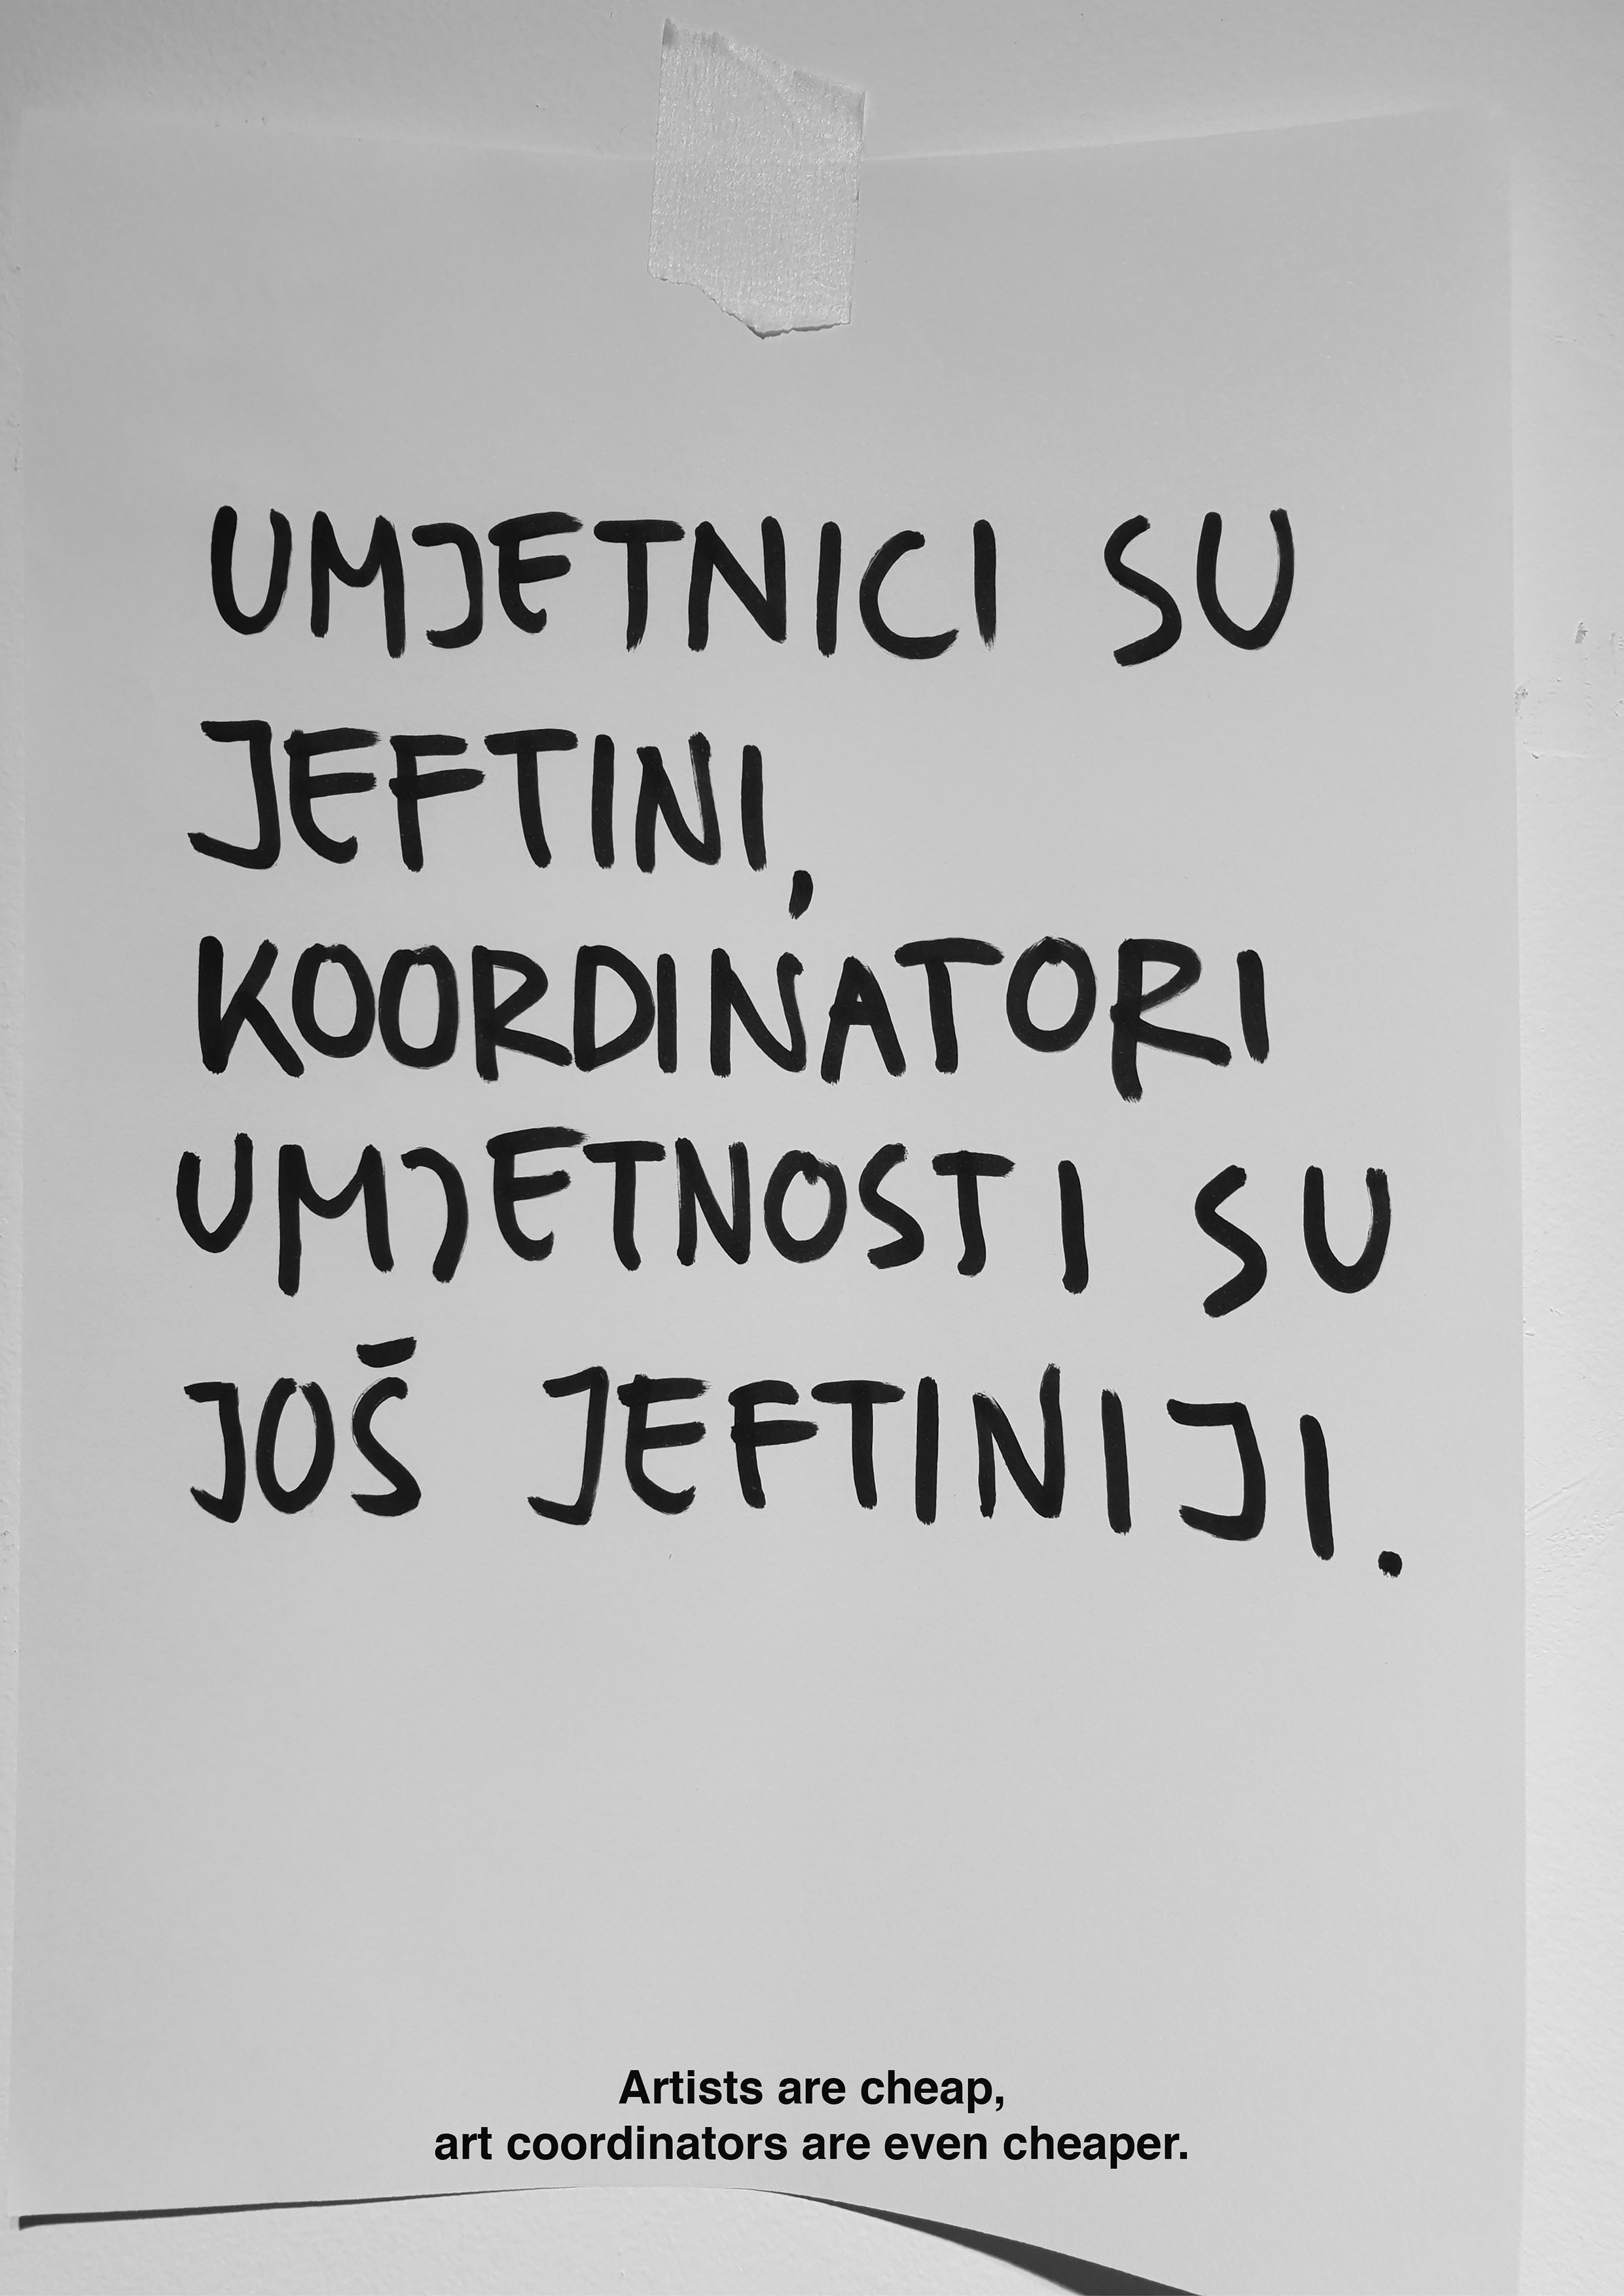 UMJETNICI SU
JEFTINI,
KOORDINATORI
UMJETNOSTI SU
JOŠ JEFTINIJI.
Artists are cheap,
art coordinators are even cheaper.